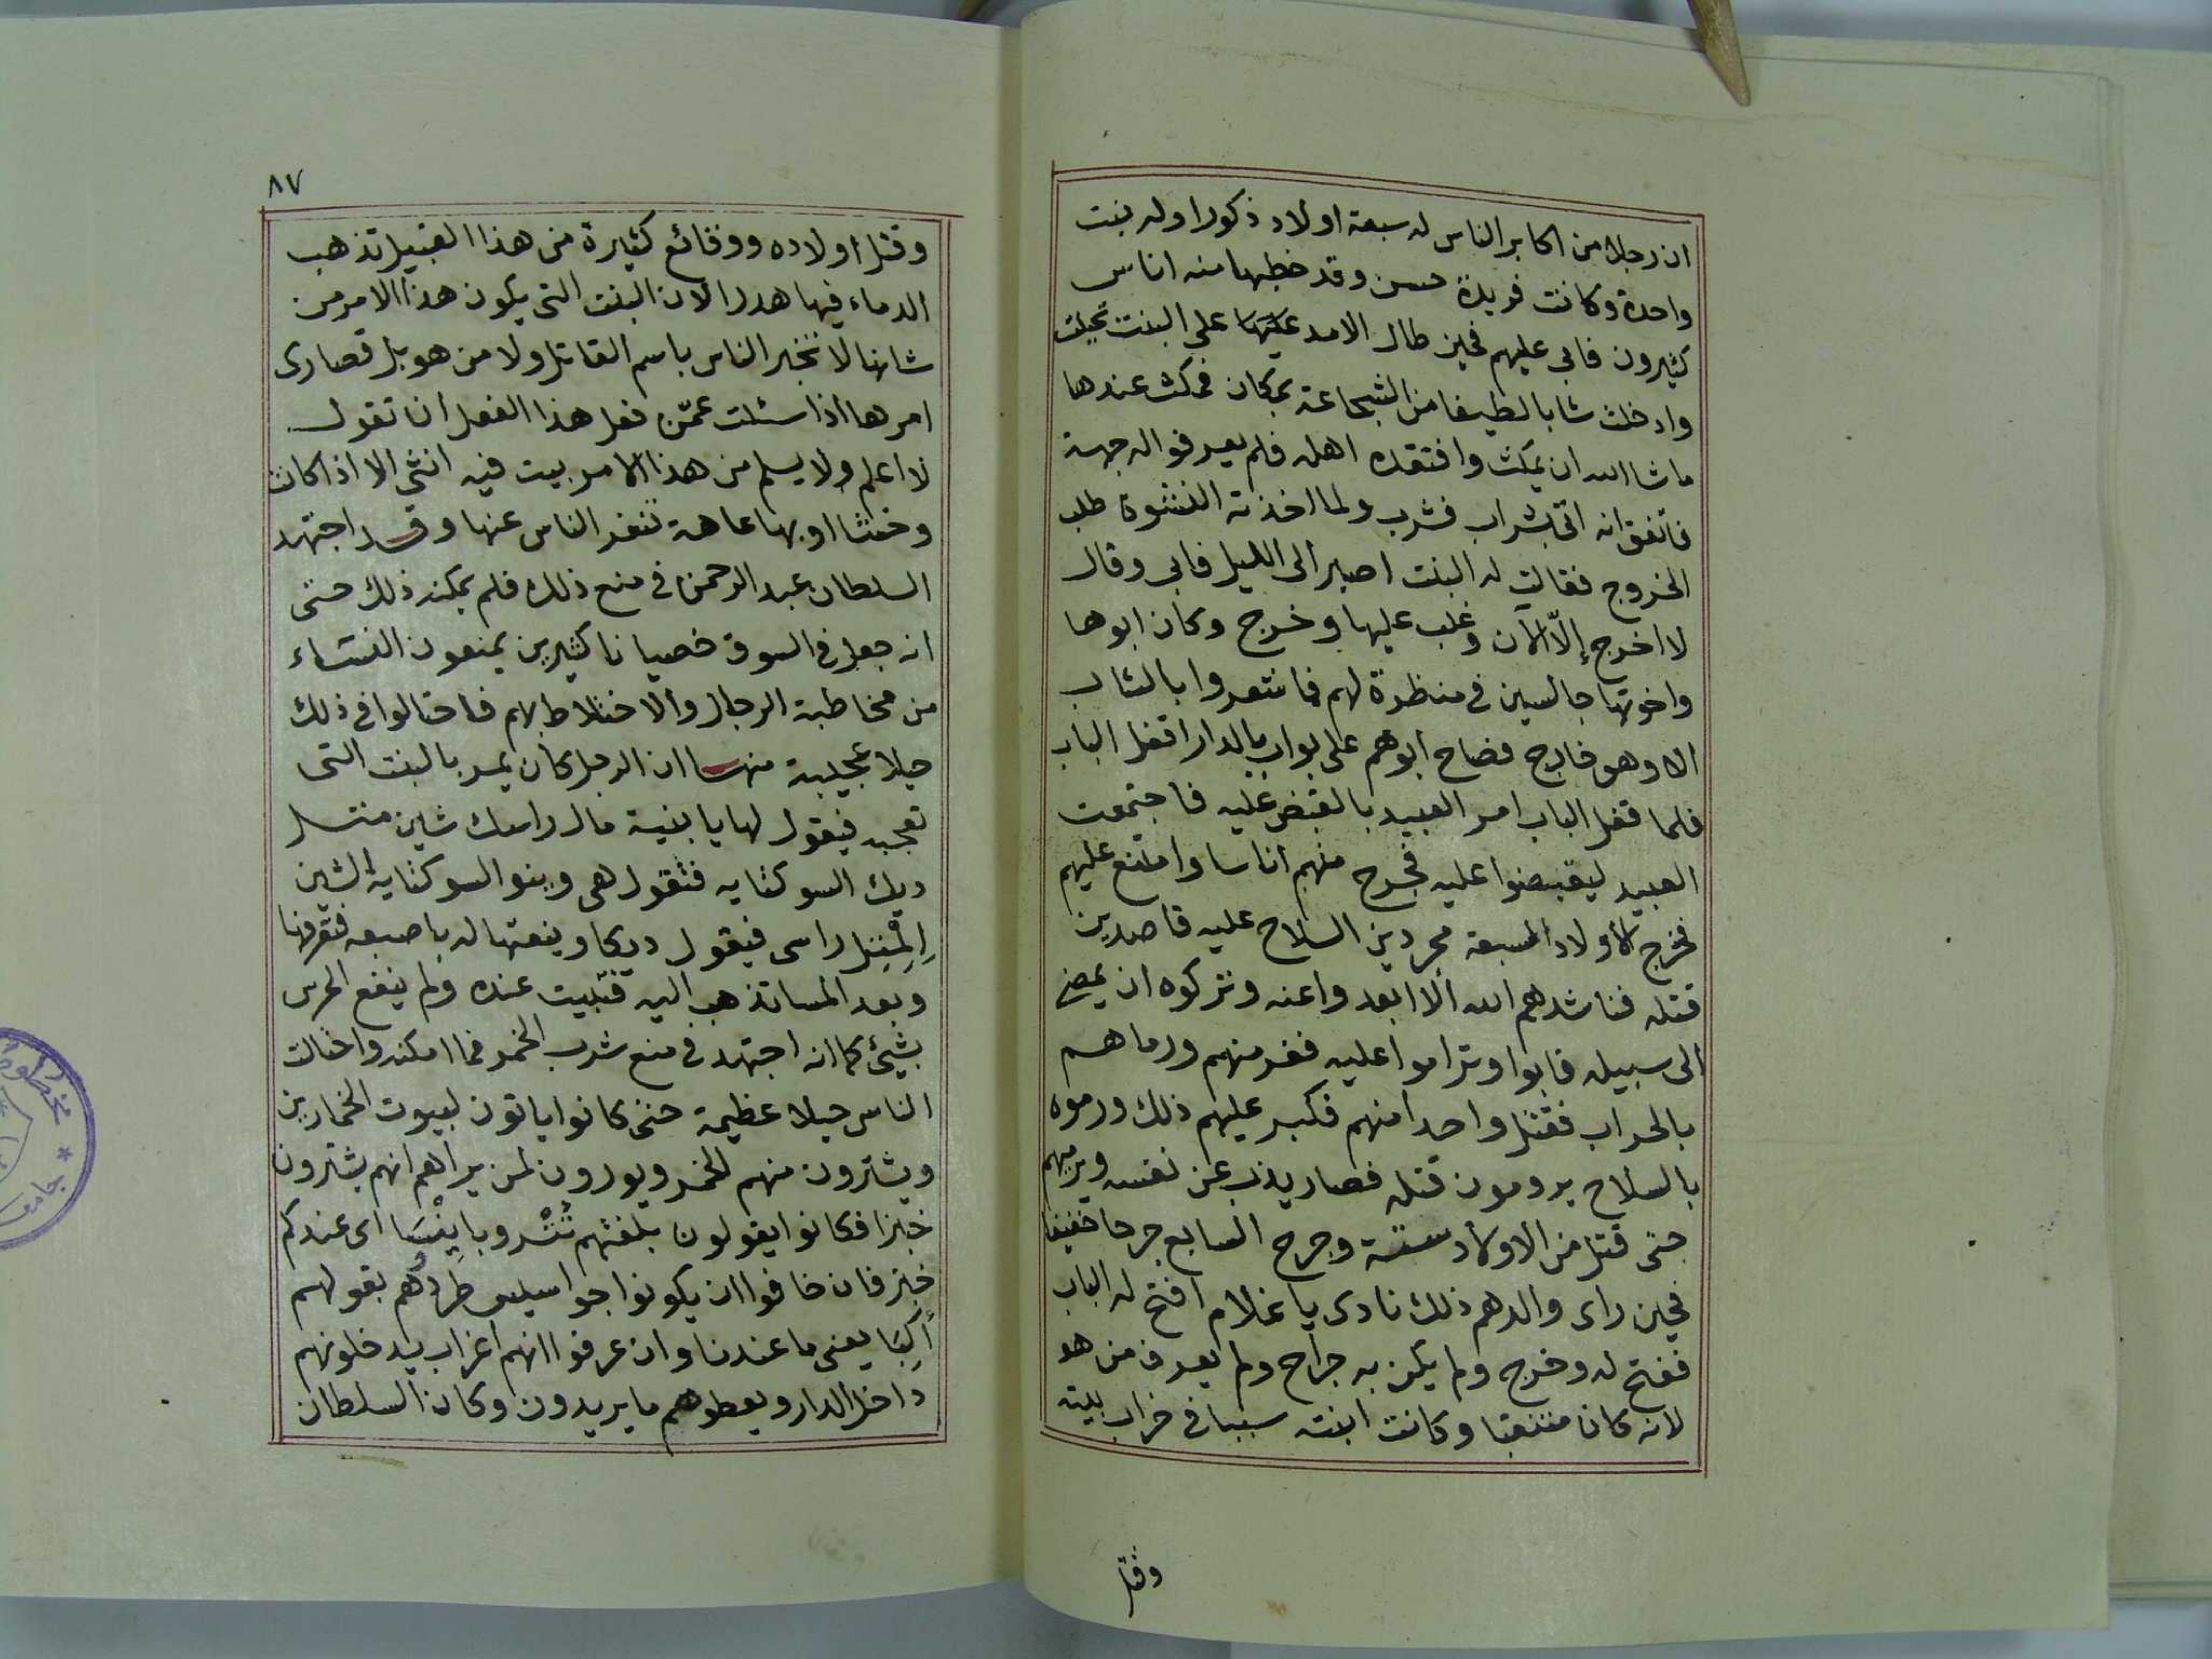 ان رجلا من اكابر الناس له سبعة اولاد ذكورا وله بنت
واحدة وكانت فريدة حسن وقد خطبها منه اناس
كثيرون فابى عليهم فحين طال الامد عليها على البنت تحيلت
وادخلت شابا لطيفا من الشجاعة بمكان فمكث عندها
ما شا الله ان يمكث وافتقده اهله فلم يعرفوا له جهة
فاتفق انه اتى بشراب فشرب ولما اخذته النشوة طلب
الخروج فقالت له البنت اصبر الى الليل فابى وقال
لا اخرج إلّا الآن وغلب عليها وخرج وكان ابوها
واخوتها جالسين في منظرة لهم فما شعروا بالشاب
الا وهو خارج فصاح ابوهم على بواب بالدار اقفل الباب
فلما قفل الباب امر العبيد بالقبض عليه فاجتمعت
العبيد ليقبضوا عليه فجرح منهم اناسا وامتنع عليهم
فخرج الاولاد السبعة مجردين السلاح عليه قاصدين
قتله فناشدهم الله الا ابعدوا عنه وتركوه ان يمضى
الى سبيله فابوا وتراموا عليه ففر منهم ورماهم
بالحراب فقتل واحدا منهم فكبر عليهم ذلك ورموه
بالسلاح يرومون قتله فصار يذب عن نفسه ويرميهم
حتى قتل من الاولاد ستة وجرح السابع جرحا خفيفا
فحين راى والدهم ذلك نادى يا غلام افتح له الباب
ففتح له وخرج ولم يكن به جراح ولم يعرف من هو
لانه كان متنقبا وكانت ابنته سببا في خراب بيته
وقتل
٨٧
وقتل اولاده ووقائع كثيرة من هذا القبيل تذهب
الدماء فيها هدرا لان البنت التى يكون هذا الامر من
شانها لا تخبر الناس باسم القاتل ولا من هو بل قصارى
امرها اذا سئلت عمّن فعل هذا الفعل ان تقول
لا اعلم ولا يسلم من هذا الامر بيت فيه انثى الا اذا كانت
وخشا او بها عاهة تنفر الناس عنها وقد اجتهد
السلطان عبد الرحمن في منع ذلك فلم يمكنه ذلك حتى
انه جعل في السوق خصيانا كثيرين يمنعون النساء
من مخاطبة الرجال والاختلاط بهم فاحتالوا في ذلك
حيلا عجيبة منها ان الرجل كان يمر بالبنت التى
تعجبه فيقول لها يا بنية مال راسك شاين متل
ديك السوكتايه فتقول هى وينو السوكتايه الشين
المتل راسى فيقول ديكا وينعتها له باصبعه فتعرفها
وبعد المسا تذهب اليه فتبيت عنده ولم ينفع الحرس
بشيئ كما انه اجتهد في منع شرب الخمر فما امكنه واحتالت
الناس حيلا عظيمة حتى كانوا ياتون لبيوت الخمارين
ويشترون منهم الخمر ويورون لمن يراهم انهم يشترون
خبزا فكانوا يقولون بلغتهم تُتْرو باينْسَا اى عندكم
خبز فان خافوا ان يكونوا جواسيس طردُهم بقولهم
أَكِبَا يعنى ما عندنا وان عرفوا انهم اغراب يدخلونهم
داخل الدار ويعطوهم ما يريدون وكان السلطان
جامعة